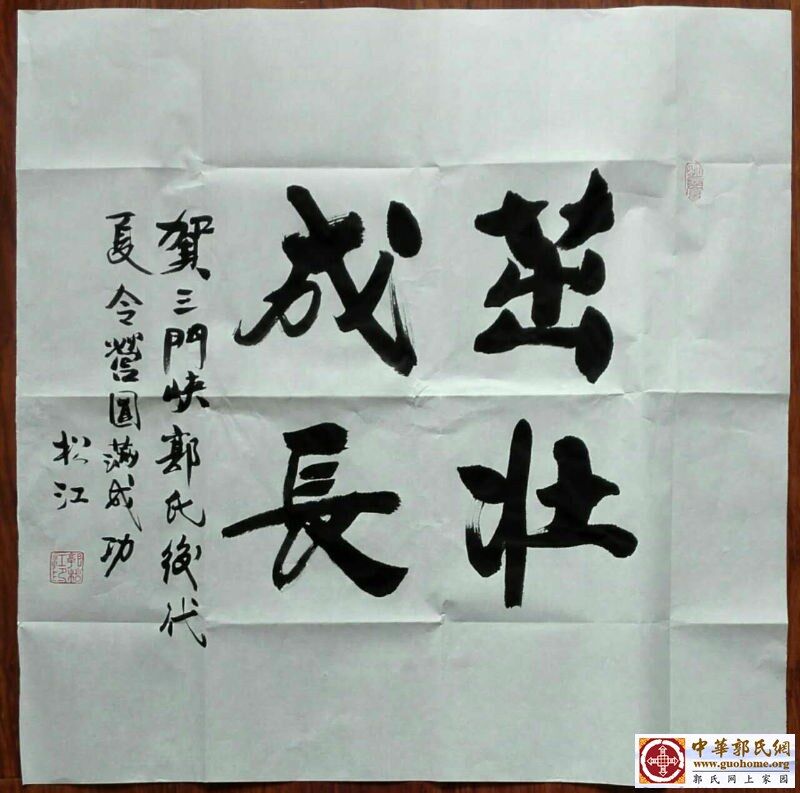 茁壯
成長
賀三門峽郭氏後代
夏令營圓滿成功
松江
中華郭氏網
www.guohome.org
郭氏网上家园